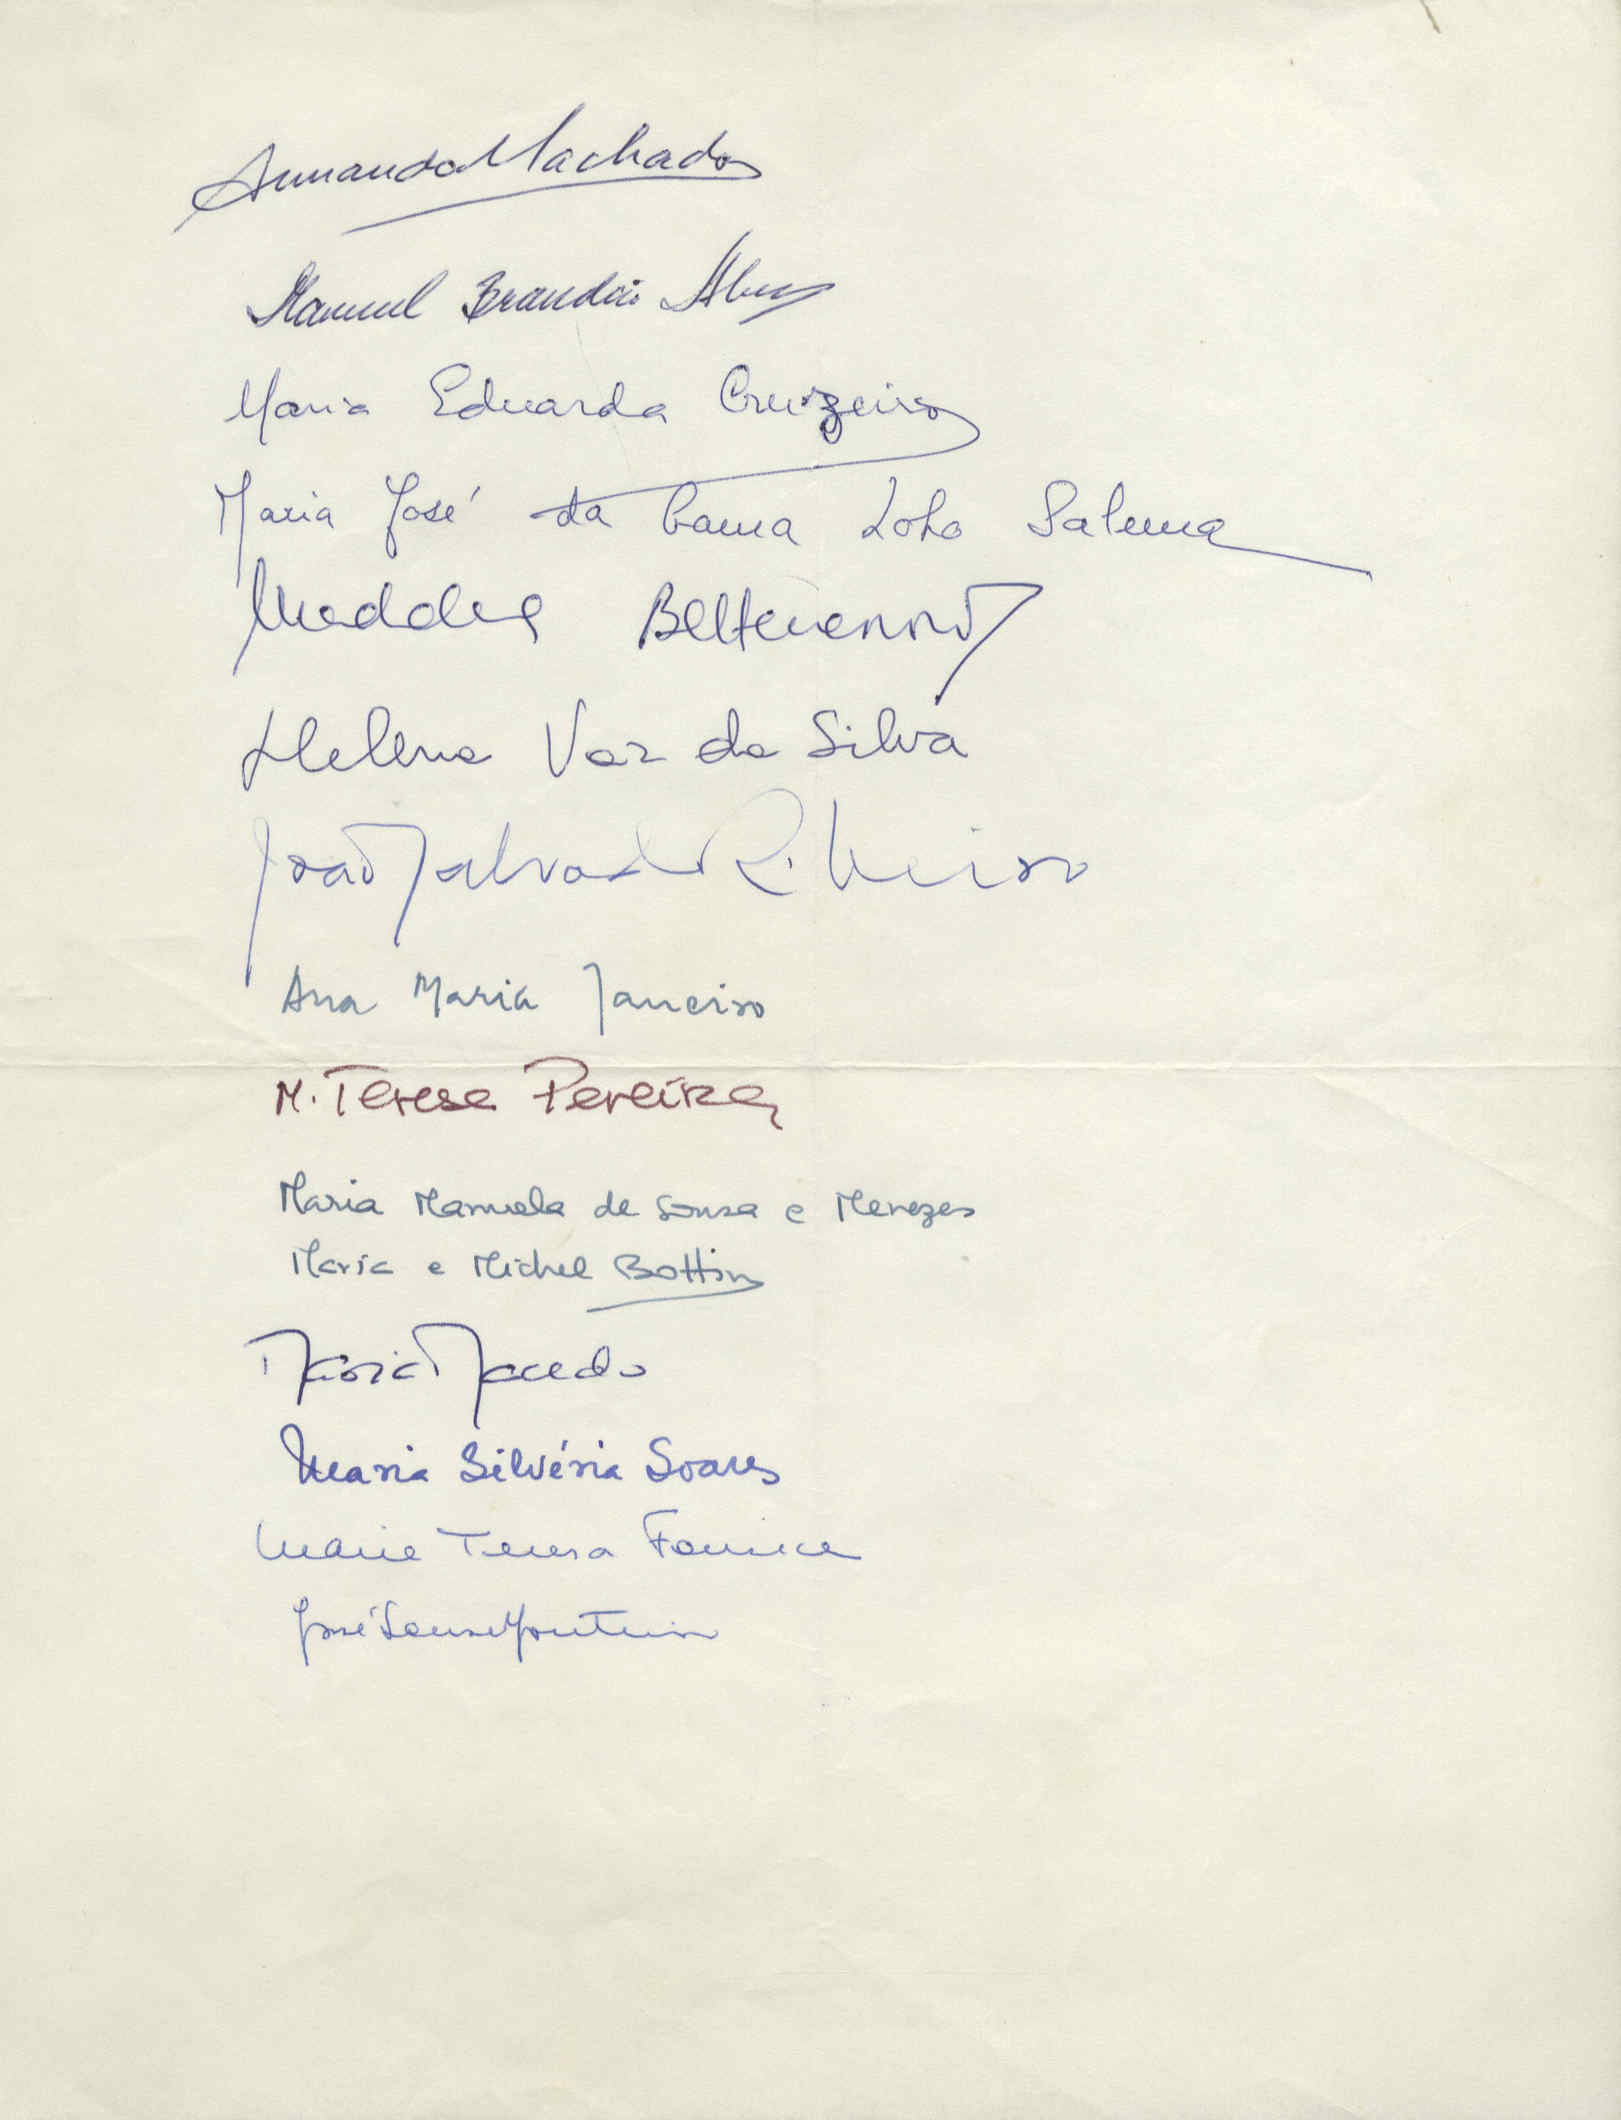 Armando Machado
Manuel Brandão Alves
Maria Eduarda Cruzeiro
Maria José da Gama Lobo Salema
Beltenenord
Helena Vaz da Silva
João Salvado Ribeiro
Ana Maria Janeiro
M. Teresa Pereira
Maria Manuela de Sousa e Menezes
Maria e Michel Bottin
Maria Macedo
Maria Silvéria Soares
Maria Teresa
José Sousa Monteiro